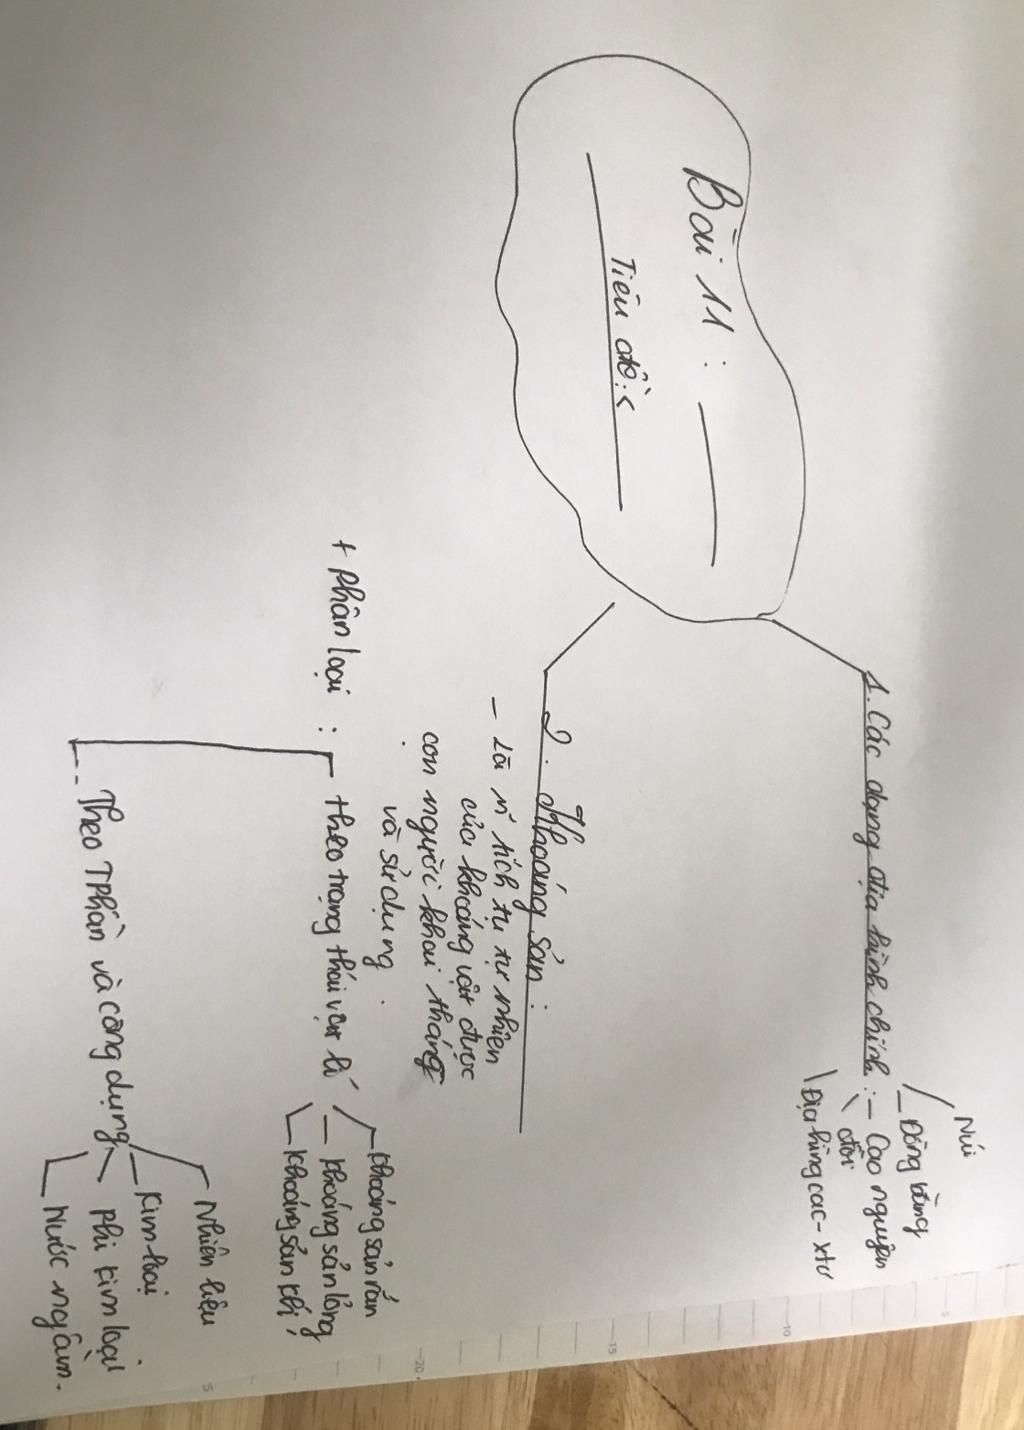 Bài 11 :
Tiêu đề :
1. Các dạng địa hình chính :
Núi
Đồng bằng
- Cao nguyên
đồi
Địa hình cac-xtơ
2. Khoáng sản :
- Là tích tụ tự nhiên
của khoáng vật được
con người khai thác
và sử dụng .
+ Phân loại :
theo trạng thái vật lí
Khoáng sản rắn
Khoáng sản lỏng
Khoáng sản khí
Theo TPhần và công dụng
Nhiên liệu
Kim loại
Phi kim loại
Nước ngầm .
5
10
15
20